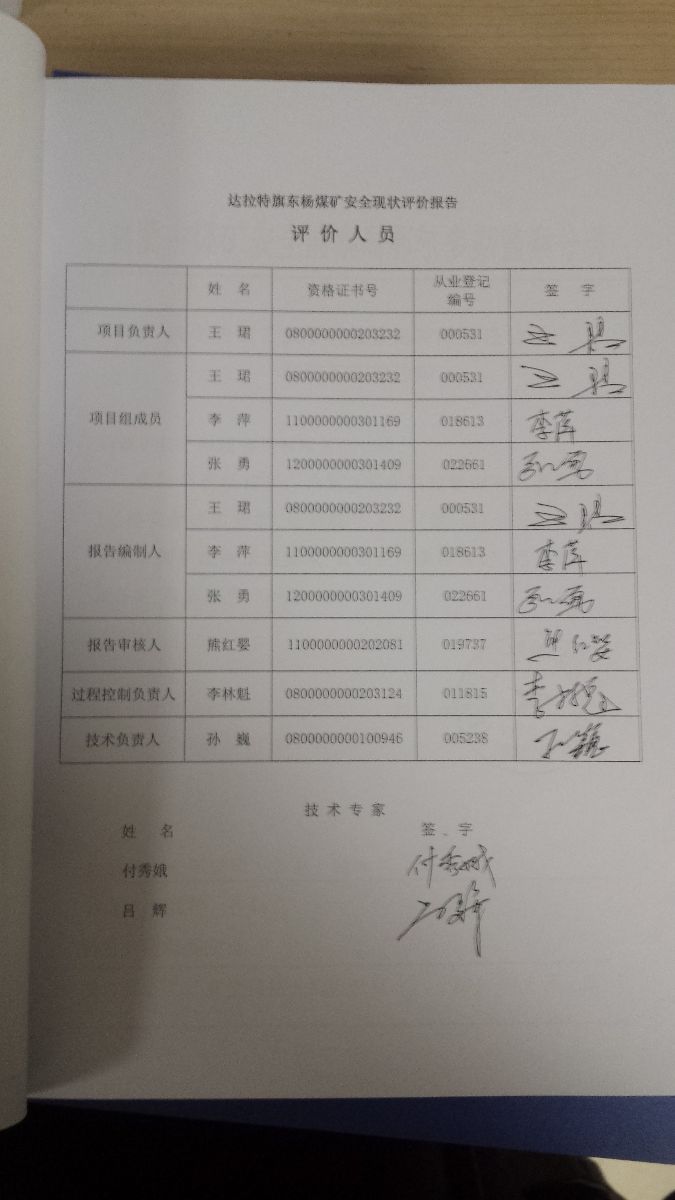 达拉特旗东杨煤矿安全现状评价报告
评价人员
姓 名 资格证书号 从业登记编号 签 字
项目负责人 王 珺 0800000000203232 000531
项目组成员 王 珺 0800000000203232 000531
李 萍 1100000000301169 018613 李萍
张 勇 1200000000301409 022661
报告编制人 王 珺 0800000000203232 000531
李 萍 1100000000301169 018613 李萍
张 勇 1200000000301409 022661
报告审核人 熊红婴 1100000000202081 019737 熊红婴
过程控制负责人 李林魁 0800000000203124 011815 李林魁
技术负责人 孙 巍 0800000000100946 005238 孙巍
技术专家
姓 名 签 字
付秀娥 付秀娥
吕 辉